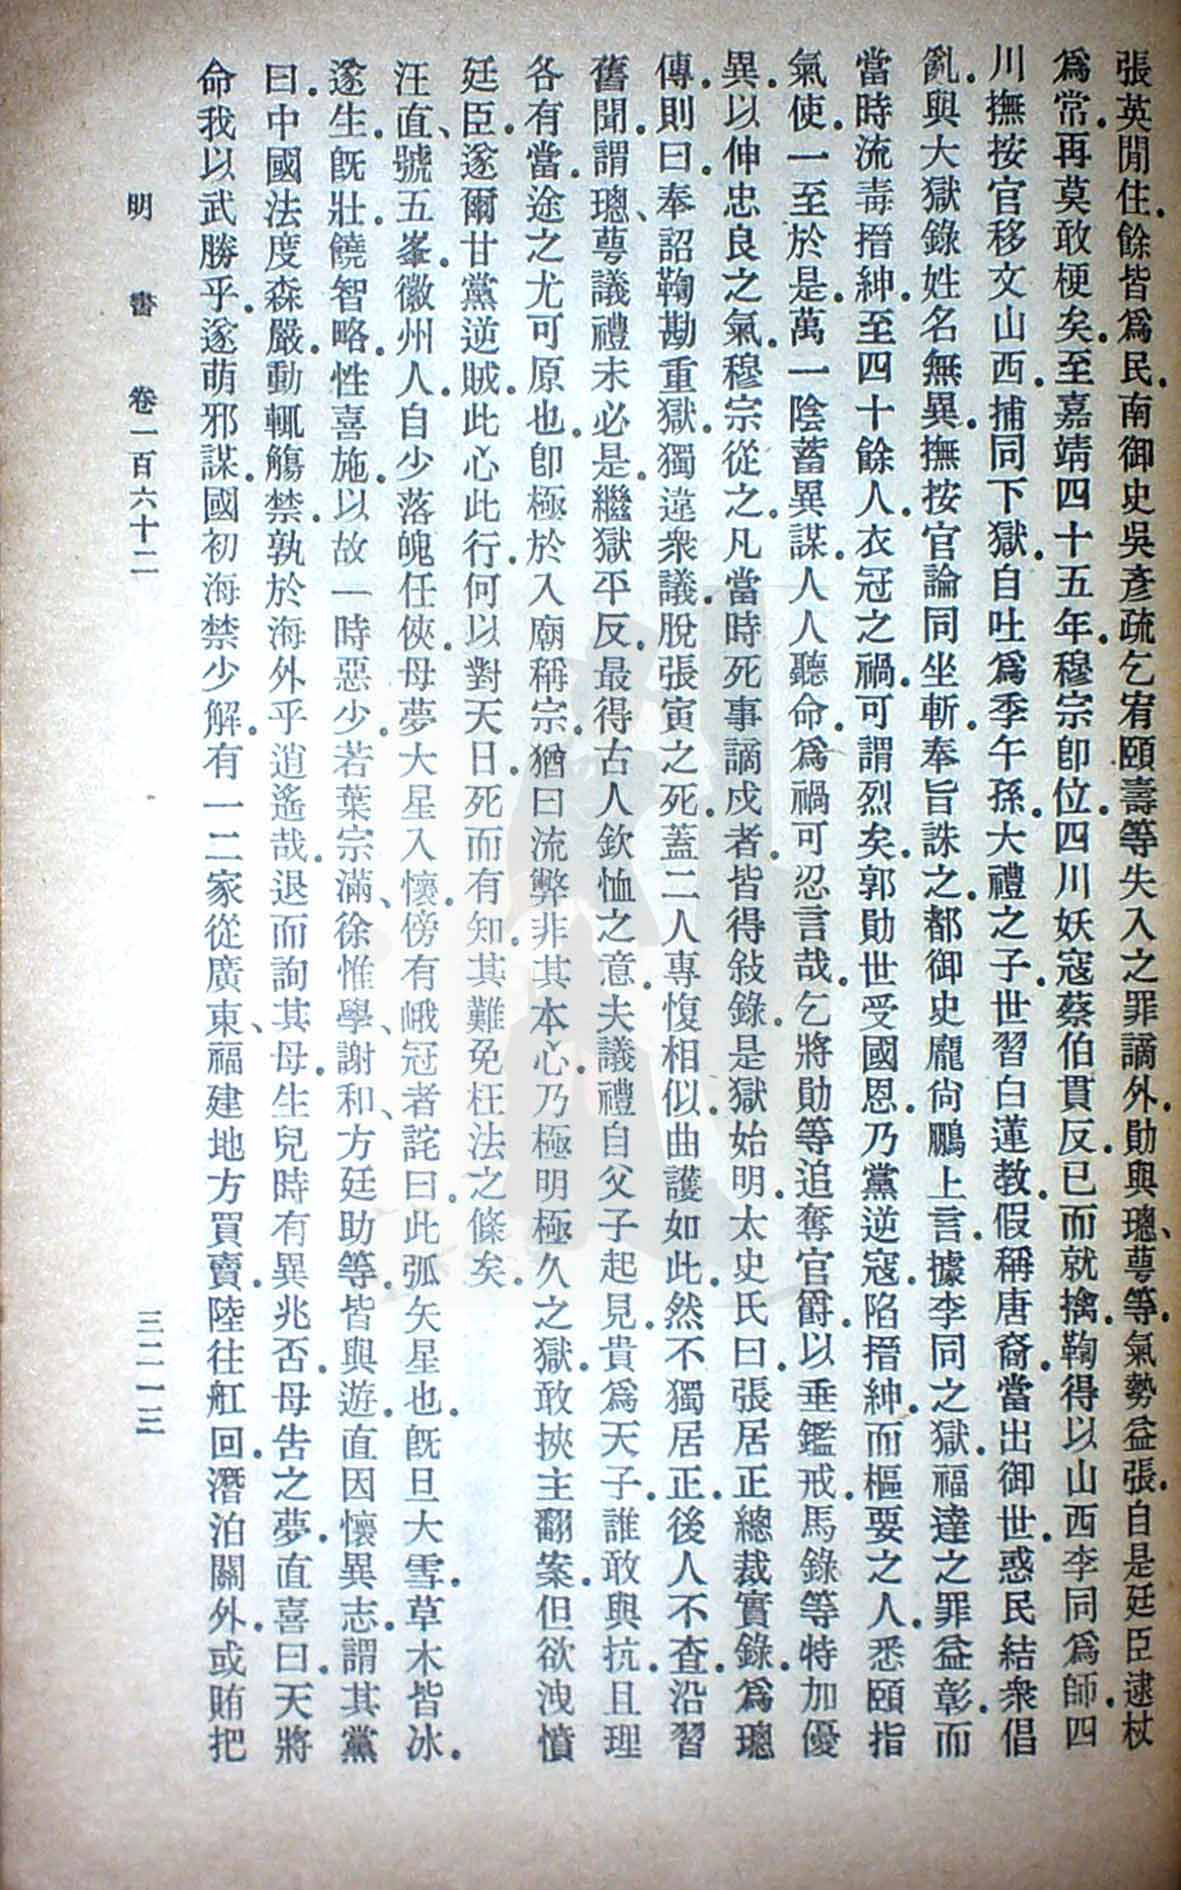 張英閒住.餘皆爲民.南御史吳彥疏乞宥頤壽等失入之罪謫外.勛與璁、萼等.氣勢益張.自是廷臣逮杖
爲常.再莫敢梗矣.至嘉靖四十五年.穆宗卽位.四川妖寇蔡伯貫反.已而就擒.鞠得以山西李同爲師.四
川撫按官移文山西.捕同下獄.自吐爲季午孫.大禮之子.世習白蓮教.假稱唐裔.當出御世.惑民結衆倡
亂.與大獄錄姓名無異.撫按官論同坐斬.奉旨誅之.都御史龐尙鵬上言.據李同之獄.福達之罪益彰.而
當時流毒搢紳.至四十餘人.衣冠之禍.可謂烈矣.郭勛世受國恩.乃黨逆寇.陷搢紳.而樞要之人.悉頤指
氣使.一至於是.萬一陰蓄異謀.人人聽命.爲禍可忍言哉.乞將勛等追奪官爵.以垂鑑戒.馬錄等特加優
異.以伸忠良之氣.穆宗從之.凡當時死事謫戍者.皆得敍錄.是獄始明.太史氏曰.張居正總裁實錄.爲璁
傳.則曰.奉詔鞫勘重獄.獨違衆議.脫張寅之死.蓋二人專愎相似.曲護如此.然不獨居正.後人不查.沿習
舊聞.謂璁、萼議禮未必是.繼獄平反.最得古人欽恤之意.夫議禮自父子起見.貴爲天子.誰敢與抗.且理
各有當.途之尤可原也.卽極於入廟稱宗.猶曰流弊非其本心.乃極明極久之獄.敢挾主翻案.但欲洩憤
廷臣.遂爾甘黨逆賊.此心此行.何以對天日.死而有知.其難免枉法之條矣.
汪直、號五峯.徽州人.自少落魄任俠.母夢大星入懷.傍有峨冠者詫曰.此弧矢星也.旣旦大雪.草木皆冰.
遂生.旣壯.饒智略.性喜施.以故一時惡少.若葉宗滿、徐惟學、謝和、方廷助等.皆與遊.直因懷異志.謂其黨
曰.中國法度森嚴.動輒觸禁.孰於海外乎逍遙哉.退而詢其母.生兒時有異兆否.母告之夢.直喜曰.天將
命我以武勝乎.遂萌邪謀.國初海禁少解.有一二家從廣東、福建地方買賣.陸往舡回.潛泊關外.或賄把
明書 卷一百六十二 三二一三